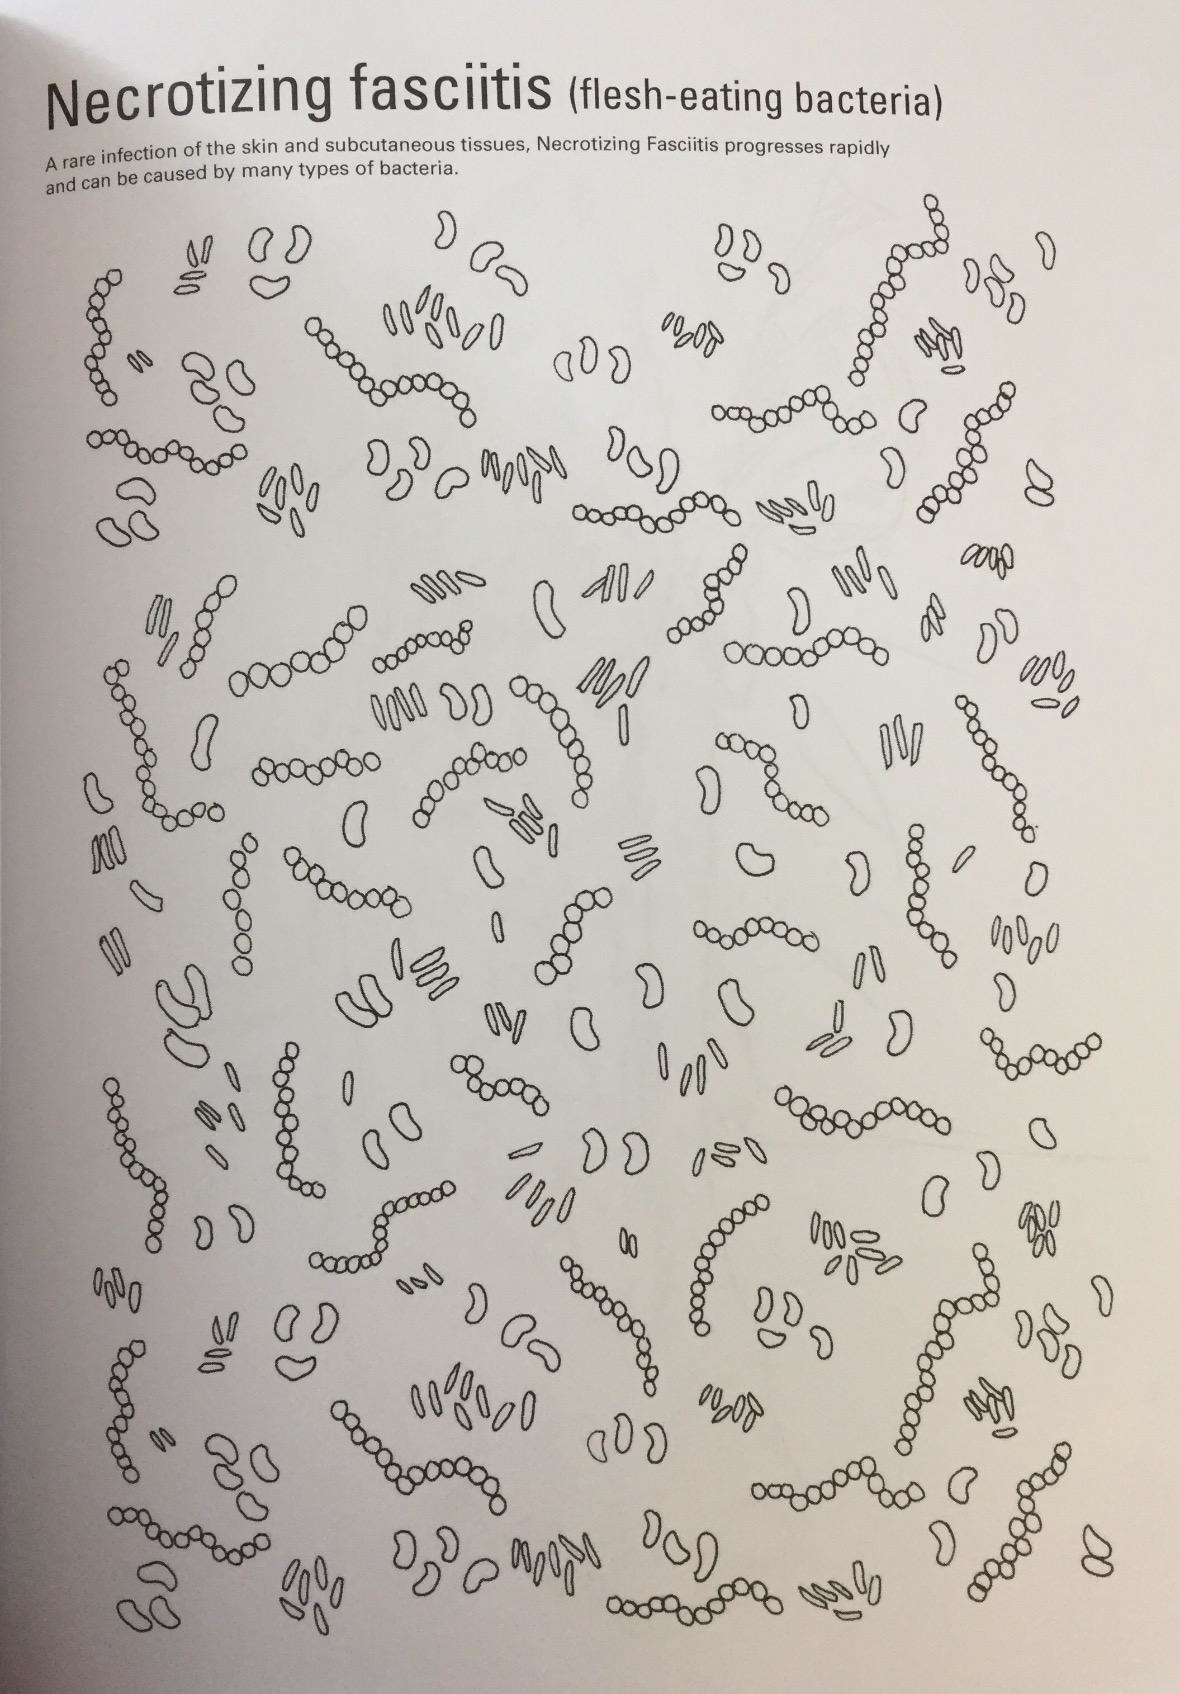 Necrotizing fasciitis (flesh-eating bacteria)
A rare infection of the skin and subcutaneous tissues, Necrotizing Fasciitis progresses rapidly
and can be caused by many types of bacteria.